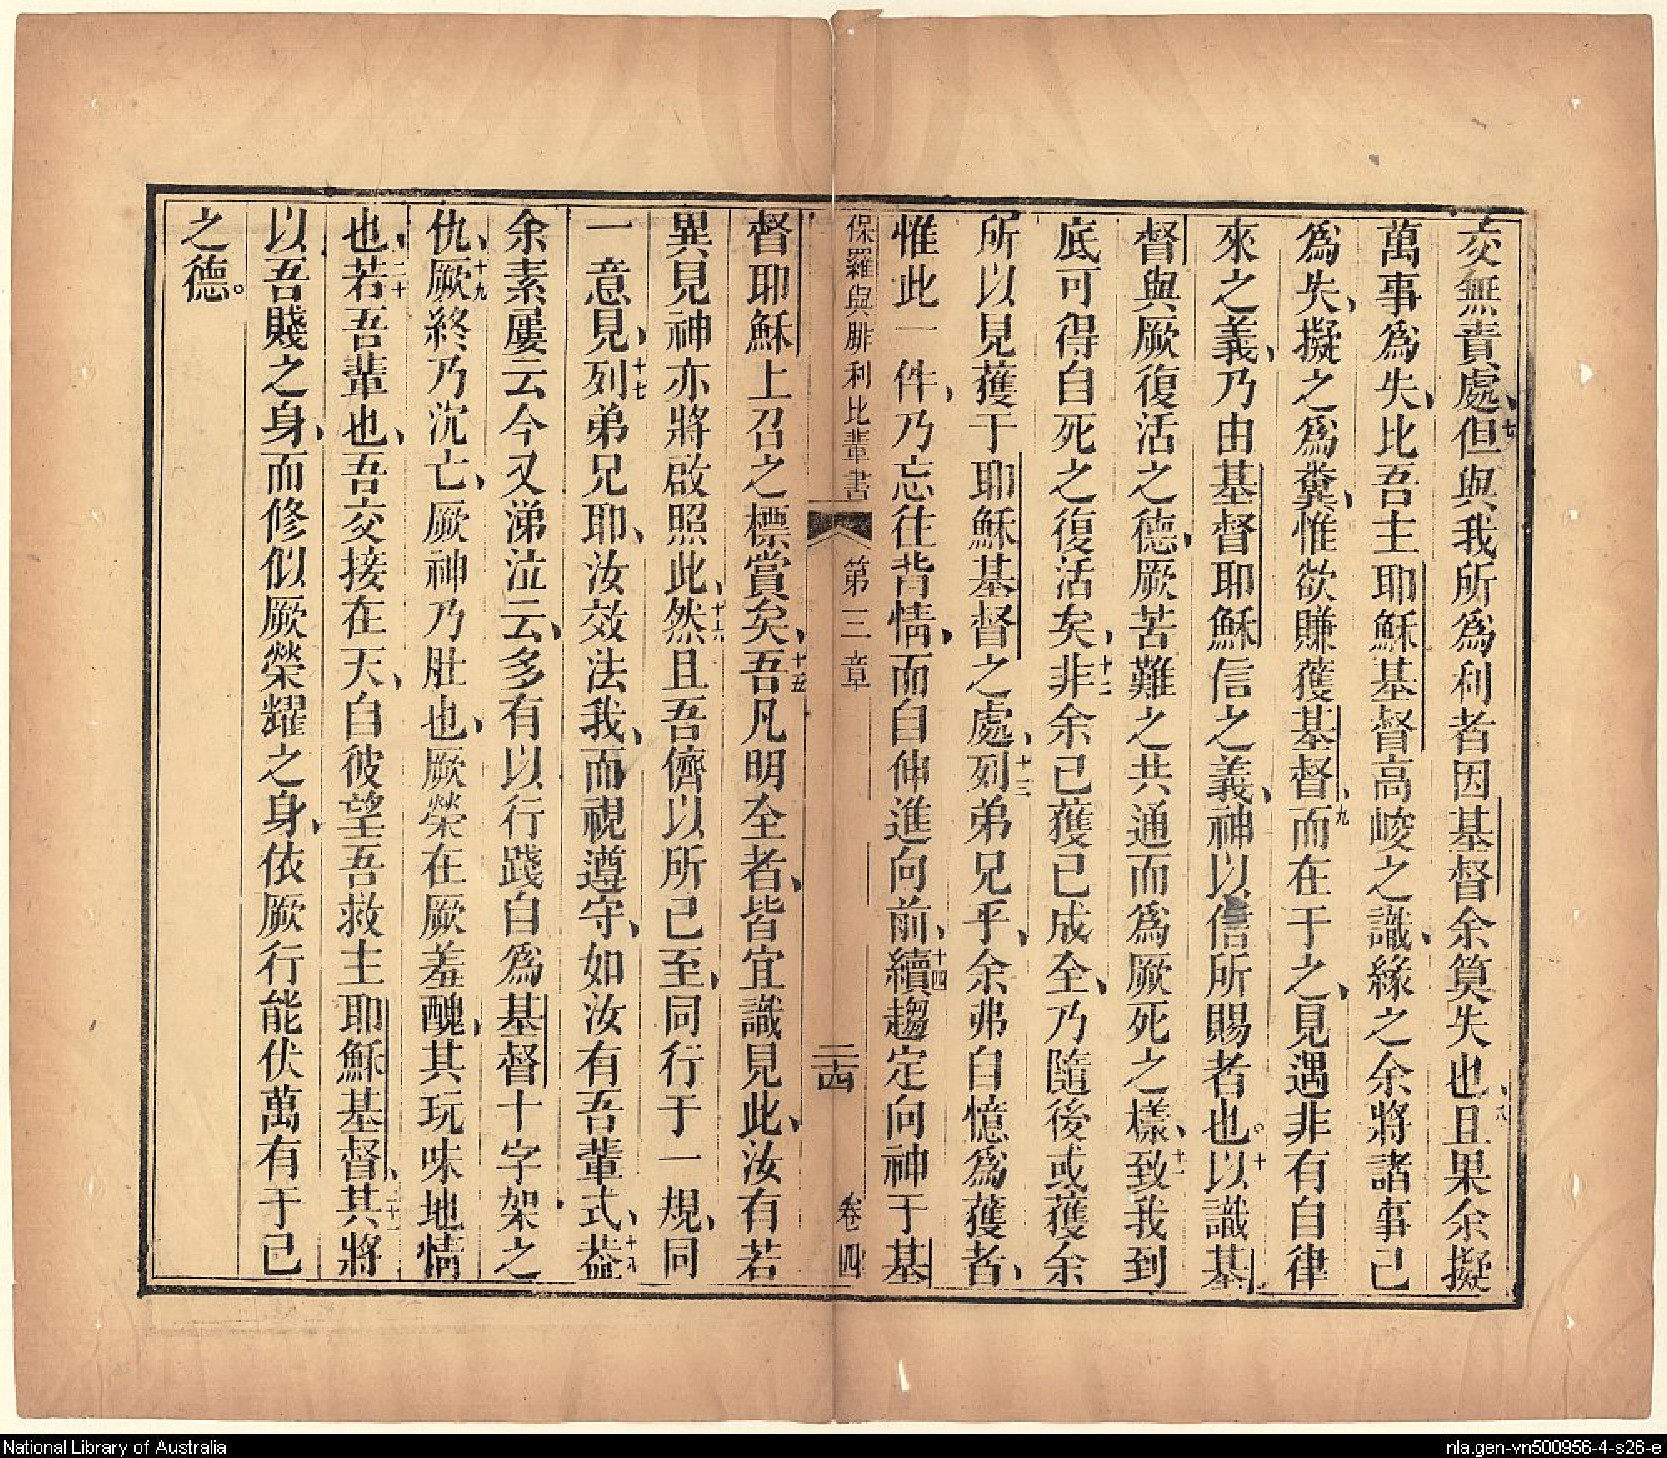 亥無責處、七但與我所爲利者因基督余算失也、八且果余擬
萬事爲失、比吾主耶穌基督高峻之識、緣之余將諸事已
爲失、擬之爲糞、惟欲賺獲基督、九而在于之、見遇非有自律
來之義、乃由基督耶穌信之義、神以信所賜者也。十以識基
督與厥復活之德、厥苦難之共通而爲厥死之樣、十一致我到
底可得自死之復活矣、十二非余已獲已成全、乃隨後或獲余
所以見獲于耶穌基督之處、十三列弟兄乎、余弗自憶爲獲者、
惟此一件、乃忘往背情、而自伸進向前、十四續趨定向神于基
保羅與腓利比輩書 第三章 二十四 卷四
督耶穌上召之標賞矣、十五吾凡明全者、皆宜識見此、汝有若
異見神亦將啟照此、十六然且吾儕以所已至、同行于一規、同
一意見、十七列弟兄耶、汝效法我、而視遵守、如汝有吾輩式、十八蓋
余素屢云今又涕泣云、多有以行踐自爲基督十字架之
仇、十九厥終乃沉亡、厥神乃肚也、厥榮在厥羞醜、其玩味地情
也、二十若吾輩也、吾交接在天、自彼望吾救主耶穌基督、二十一其將
以吾賤之身、而修似厥榮耀之身、依厥行能伏萬有于已
之德。
National Library of Australia
nla.gen-vn500956-4-s26-e